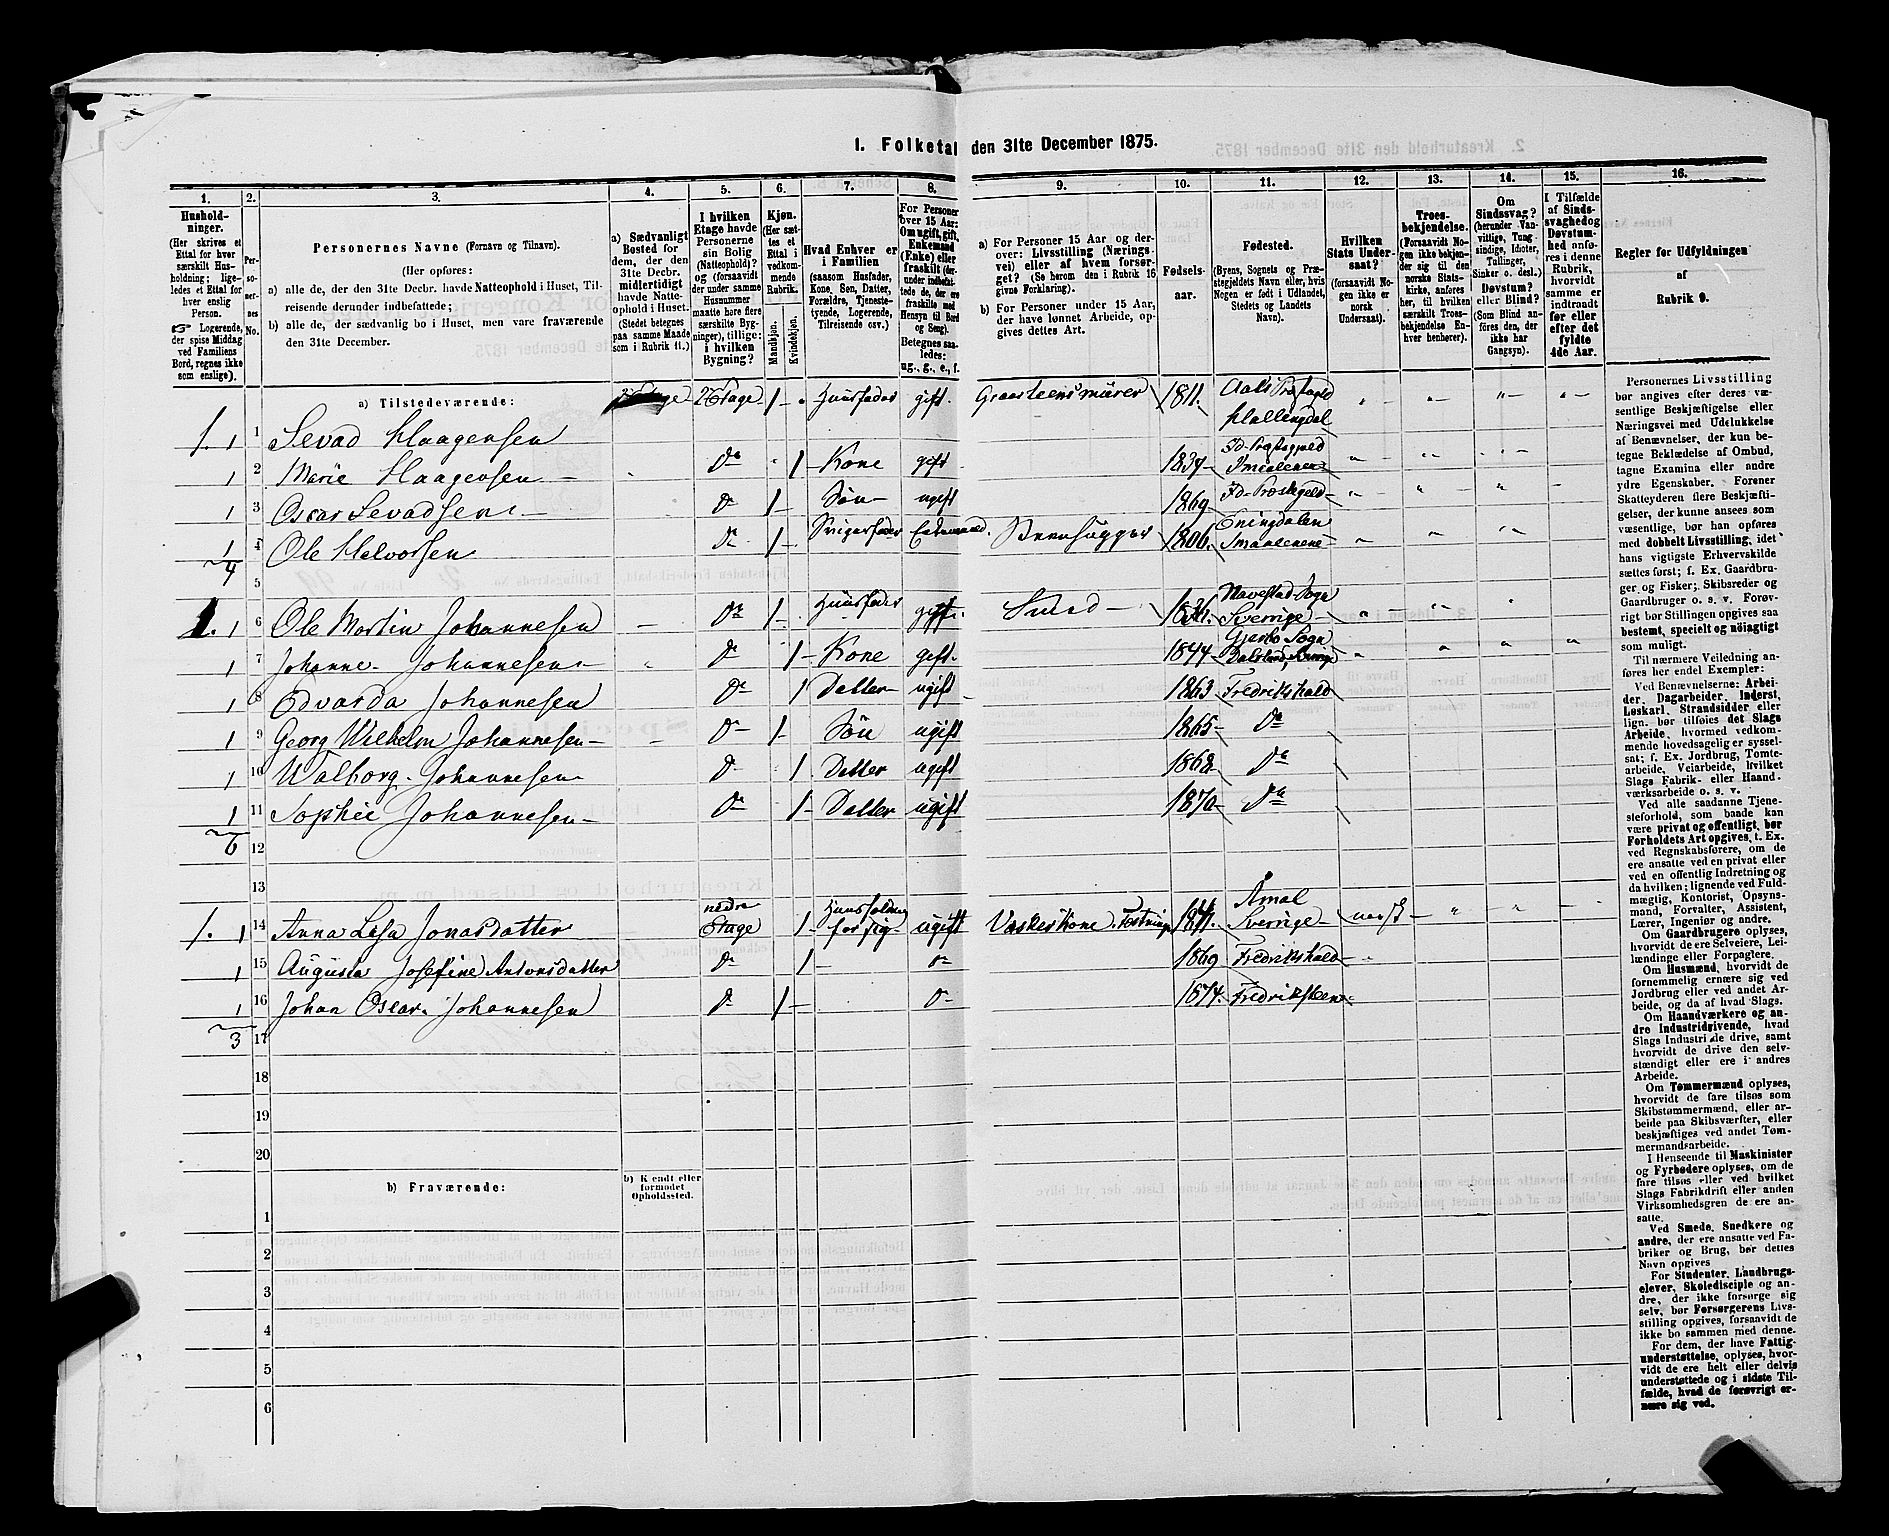 1. Folketal den 31te December 1875.
1. 2. 3. 4. 5. 6. 7. 8. 9. 10. 11. 12. 13. 14. 15. 16.
Hushold-
ninger.
(Her skrives et
Ettal for hver
særskilt Hus-
holdning; lige-
ledes et Ettal for
hver enslig
Person.
☞ Logerende,
der spise Middag
ved Familiens
Bord, regnes ikke
som enslige).
Per-
so-
ner-
nes
No.
Personernes Navne (Fornavn og Tilnavn).
(Her opføres:
a) alle de, der den 31te Decbr. havde Natteophold i Huset, Til-
reisende derunder indbefattede;
b) alle de, der sædvanlig bo i Huset, men vare fraværende
den 31te December.
a) Sædvanligt
Bosted for
dem, der den
31te Decbr.
midlertidigt
havde Natte-
ophold i Huset.
(Stedet betegnes
paa samme Maade
som i Rubrik 11.)
I hvilken
Etage havde
Personerne
sin Bolig
(Natteophold)?
og (forsaavidt
der under samme
Husnummer
maatte høre flere
særskilte Byg-
ninger), tillige:
i hvilken
Bygning?
Kjøn.
(Her sæt-
tes et
Ettal i
vedkom-
mende
Rubrik.
Mandkjøn.
Kvindekjøn.
Hvad Enhver er
i Familien
(saasom Husfader,
Kone, Søn, Datter,
Forældre, Tjeneste-
tyende, Logerende,
Tilreisende osv.)
For Personer
over 15 Aar:
Om ugift, gift,
Enkemand
(Enke) eller
fraskilt (der-
under indbefat-
tede de, der ere
fraskilte med
Hensyn til Bord
og Seng).
Betegnes saa-
ledes:
ug., g., e., f.
a) For Personer 15 Aar og der-
over: Livsstilling (Nærings
vei) eller af hvem forsør-
get? (Se herom den i Rubrik 16
givne Forklaring).
b) For Personer under 15 Aar,
der have lønnet Arbeide, op-
gives dettes Art.
Fødsels-
aar.
Fødested.
(Byens, Sognets og Præ-
stegjeldets Navn eller, hvis
Nogen er født i Udlandet,
Stedets og Landets
Navn).
Hvilken
Stats Under-
saat?
(forsaavidt No-
gen ikke er
norsk
Undersaat).
Troes-
bekjendelse.
(Forsaavidt No-
gen ikke bekjen-
der sig til den
norske Stats-
kirke, anføres
her, til hvilken
særskilt Troes-
bekjendelse En-
hver henhører).
Om
Sindssvag?
(herunder Van-
vittige, Tung-
sindige, Idioter,
Tullinger,
Sinker o. desl.)
Døvstum?
eller Blind? (
Som Blind an-
føres den, der
ikke har
Gangsyn).
I Tilfælde
af Sinds-
svaghed og
Døvstum-
hed anfø-
res i denne
Rubrik,
hvorvidt
samme er
indtraadt
før eller
efter det
fyldte
4de Aar.
Regler før Udfyldningen
af
Rubrik 9.
a) Tilstedeværende:
1. 1 1 Sevad Haagensen 2 Etage 1 Huusfader gift Graasteensmürer 1811. Aals Præstgjeld Hallingdal
1 2 Marie Haagensen Do 1 Kone gift 1834 Id Præstegjeld Smaalenene
1 3 Oscar Sevadsen Do 1 Søn ugift 1869 Id Præstegjeld
1 4 Ole Halvorsen Do 1 Svigerfader Enkemand 1806. Eningdalen Smaalenene
4 5
1. 1 6 Ole Martin Johannesen Do 1 Huusfader gift. Smed Navestad Sogn Sverrige
1 7 Johanne Johannesen Do 1 Kone gift. 1844 Sogn
1 8 Edvarda Johannesen Do 1 Datter ugift 1863 Fredrikshald
1 9 Georg Wilhelm Johannesen Do 1 Søn ugift 1865 Do
1 10 Walborg Johannesen Do 1 Datter ugift 1868 Do
1 11 Sophie Johannesen Do 1 Datter ugift 1870 Do
6 12
13
1. 1 14 Anna Lisa Jonasdatter nedre Etage 1 Huusholdning for sig ugift Vaskerkone Åmal Sverrige norsk
1 15 Augusta Josefine Antonsdatter Do 1 Do 1869 Fredrikshald
1 16 Johan Oscar Johannesen Do 1 Do 1874. Fredriksteen
3 17
18
19
20
b) Fraværende:
b) Kjendt eller
formodet
Opholdssted.
1
2
3
4
5
6
Personernes Livsstilling
bør angives efter deres væ-
sentlige Beskjæftigelse eller
Næringsvei med Udelukkelse
af Benævnelser, der kun be-
tegne Beklædelse af Ombud,
tagne Examina eller andre
ydre Egenskaber. Forener
Skatteyderen flere Beskjæfti-
gelser, der kunne ansees som
væsentlige, bør han opføres
med dobbelt Livsstilling, idet
hans vigtigste Erhvervskilde
sættes først; f. Ex. Gaardbru-
ger og Fisker; Skibsreder og
Gaardbruger o. s. v. Forøv-
rigt bør Stillingen opgives saa
bestemt, specielt og nöiagtigt
som muligt.
Til nærmere Veiledning an-
føres her endel Exempler:
Ved Benævnelserne: Arbei-
der, Dagarbeider, Inderst,
Løskarl, Strandsidder eller
lign. bør tilføies det Slags
Arbeide, hvormed vedkom-
mende hovedsagelig er syssel-
sat; f. Ex. Jordbrug, Tomte-
arbeide, Veiarbeide, hvilket
Slags Fabrik- eller Haand-
værksarbeide o. s. v.
Ved alle saadanne Tjene-
steforhold, som baade kan
være privat og offentligt, bør
Forholdets Art opgives, t. Ex.
ved Regnskabsførere, om de
ere ansatte ved en privat eller
ved en offentlig Indretning og
da hvilken; lignende ved Fuld-
mægtig, Kontorist, Opsyns-
mand, Forvalter, Assistent,
Lærer, Ingeniør og andre.
Om Gaardbrugere oplyses,
hvorvidt de ere Selveiere, Lei-
lændinge eller Forpagtere.
Om Husmænd, hvorvidt de
fornemmelig ernære sig ved
Jordbrug eller ved andet Ar-
beide, og da af hvad Slags.
Om Haandværkere og an-
dre Industridrivende, hvad
Slags Industri de drive, samt
hvorvidt de drive den selv-
stændigt eller ere i andres
Arbeide.
Om Tømmermænd oplyses,
hvorvidt de fare tilsøs som
Skibstømmermænd, eller ar-
beide paa Skibsværfter, eller
beskjæftiges ved andet Tøm-
mermandsarbeide.
I Henseende til Maskinister
og Fyrbødere oplyses, om de
fare tilsøs eller ved hvilket
Slags Fabrikdrift eller anden
Virksomhedsgren de ere an-
satte.
Ved Smede, Snedkere og
andre, der ere ansatte ved Fa-
briker og Brug, bør dettes
Navn opgives
For Studenter, Landbrugs-
elever, Skoledisciple og an-
dre, der ikke forsørge sig
selv, bør Forsørgerens Livs-
stilling opgives, forsaavidt de
ikke bo sammen med denne.
For dem, der have Fattig-
understøttelse, oplyses, hvor-
vidt de ere helt eller delvis
understøttede og i sidste Til-
fælde, hvad de forøvrigt er-
nære sig ved.